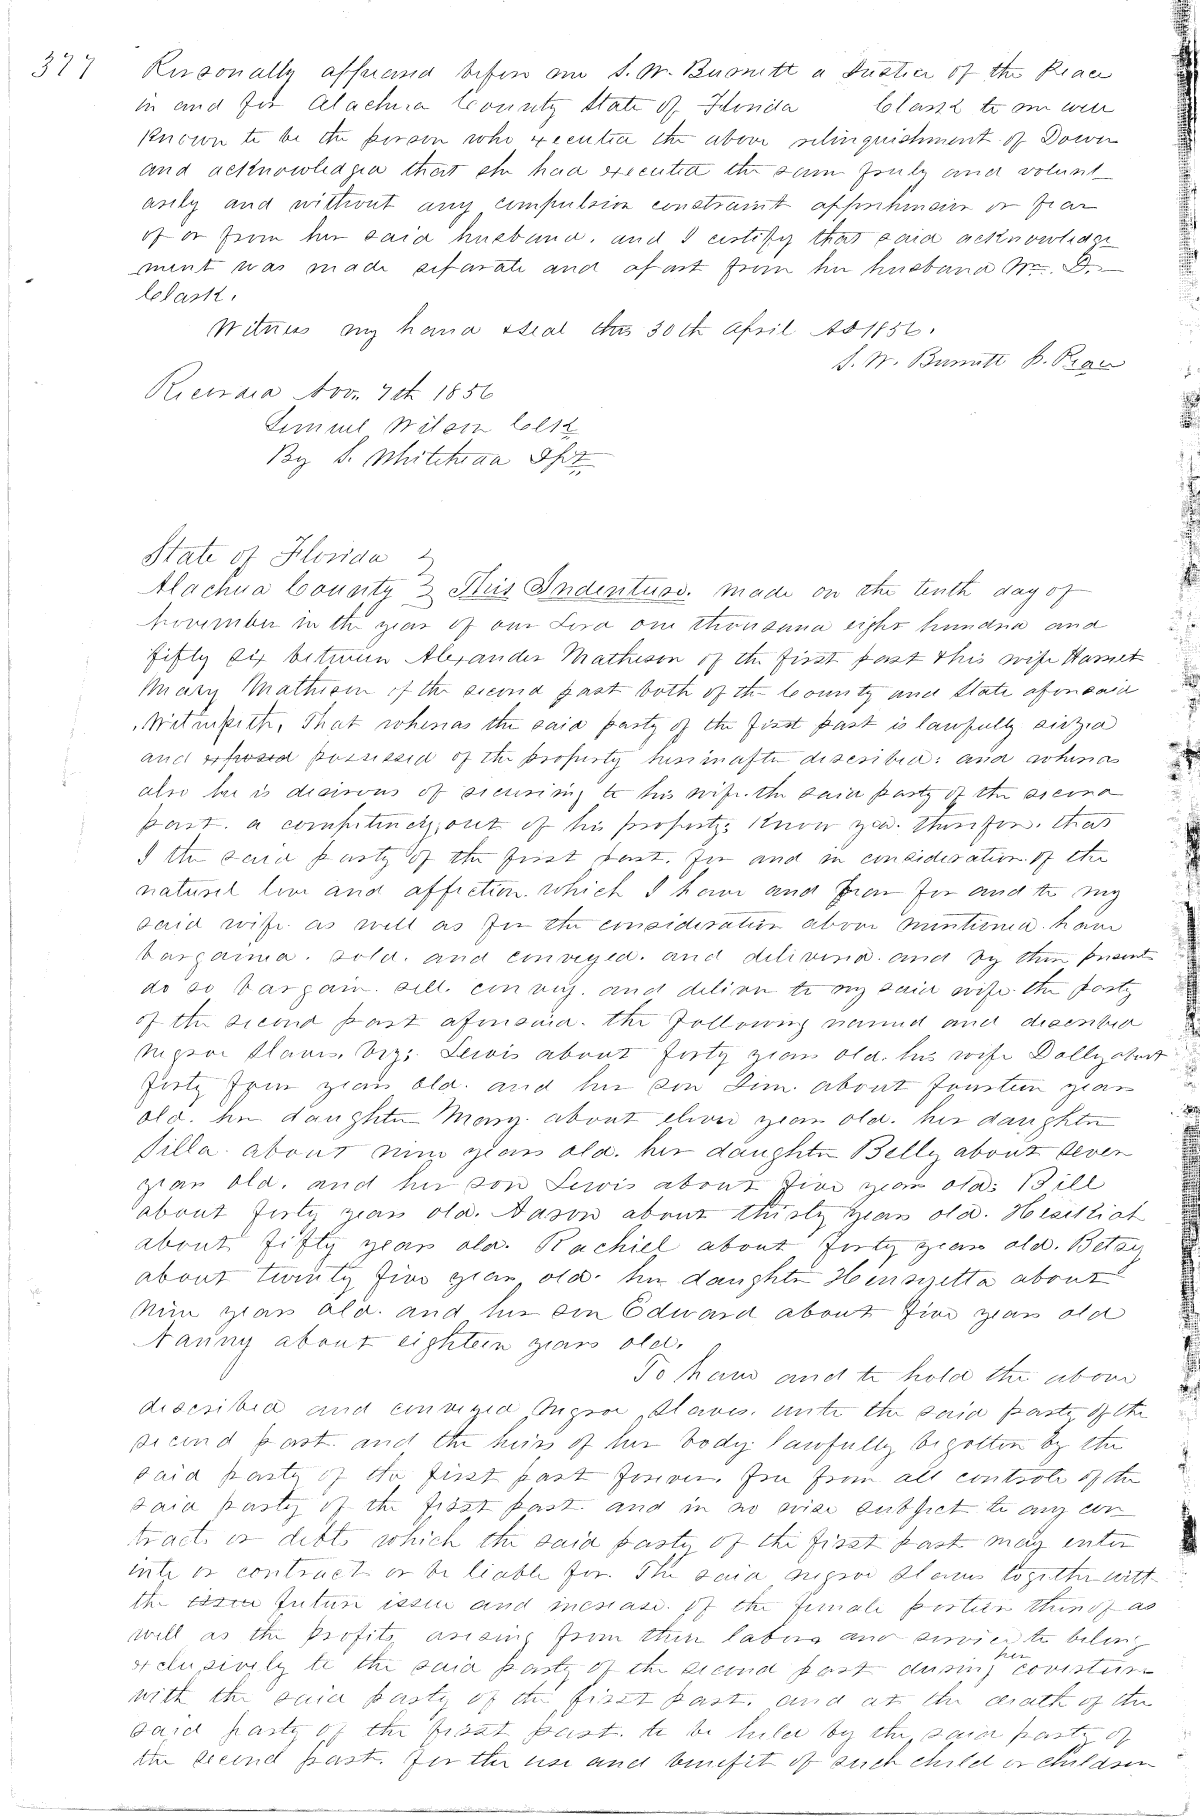 377
Personally appeared before me S. W. Burnett a Justice of the Peace
in and for Alachua County State of Florida Clark to me well
known to be the person who executed the above relinquishment of Dower
and acknowledged that she had executed the same freely and volunt
arily and without any compulsion constraint apprehension or fear
of or from her said husband. and I certify that said acknowledge
ment was made separate and apart from her husband Wm. D.
Clark.
Witness my hand & seal this 30th April AD 1856.
S. W. Burnett J. Peace
Recorded Nov. 7th 1856
Lemuel Wilson Clerk
By S. Whitehead Dpt
State of Florida }
Alachua County } This Indenture. made on the tenth day of
November in the year of our Lord one thousand eight hundred and
fifty six between Alexander Matheson of the first part & his wife Harriet
Mary Matheson of the second part both of the County and State aforesaid
Witnesseth, That whereas the said party of the first part is lawfully siezed
and possessed of the property hereinafter described: and whereas
also he is desirous of securing to his wife. the said party of the second
part. a competency, out of his property; Know yea. therefore. that
I the said party of the first part. for and in consideration of the
naturel love and affection which I have and bear for and to my
said wife. as well as for the consideration above mentioned. have
bargained. sold. and conveyed. and delivered. and by these presents
do so bargain. sell. convey. and deliver to my said wife. the party
of the second part aforesaid. the following named and described
negroe slaves. viz: Lewis about forty years old. his wife Dolly about
forty four years old. and her son Jim. about fourteen years
old. her daughter Mary. about eleven years old. her daughter
Silla. about nine years old. her daughter Belly about seven
years old. and her son Lewis about five years old; Bill
about forty years old. Aaron about thirty years old. Hesekiah
about fifty years old. Rachiel about forty years old. Betsy
about twenty five years old. her daughter Hensyetta about
nine years old. and her son Edward about five years old
Nanny about eighteen years old.
To have and to hold the above
described and conveyed negroe slaves. unto the said party of the
second part. and the heirs of her body lawfully begotten by the
said party of the first part forever. free from all controle of the
said party of the first part. and in no wise subject to any con
tracts or debts which the said party of the first part may enter
into or contract or be liable for. The said negroe slaves together with
the issue future issue and increase. of the female portion thereof as
well as the profits arising from their labors and service to belong
exclusively to the said party of the second part during her coverture
with the said party of the first part. and at the death of the
said party of the first part. to be held by the said party of
the second part. for the use and benefit of such child or children